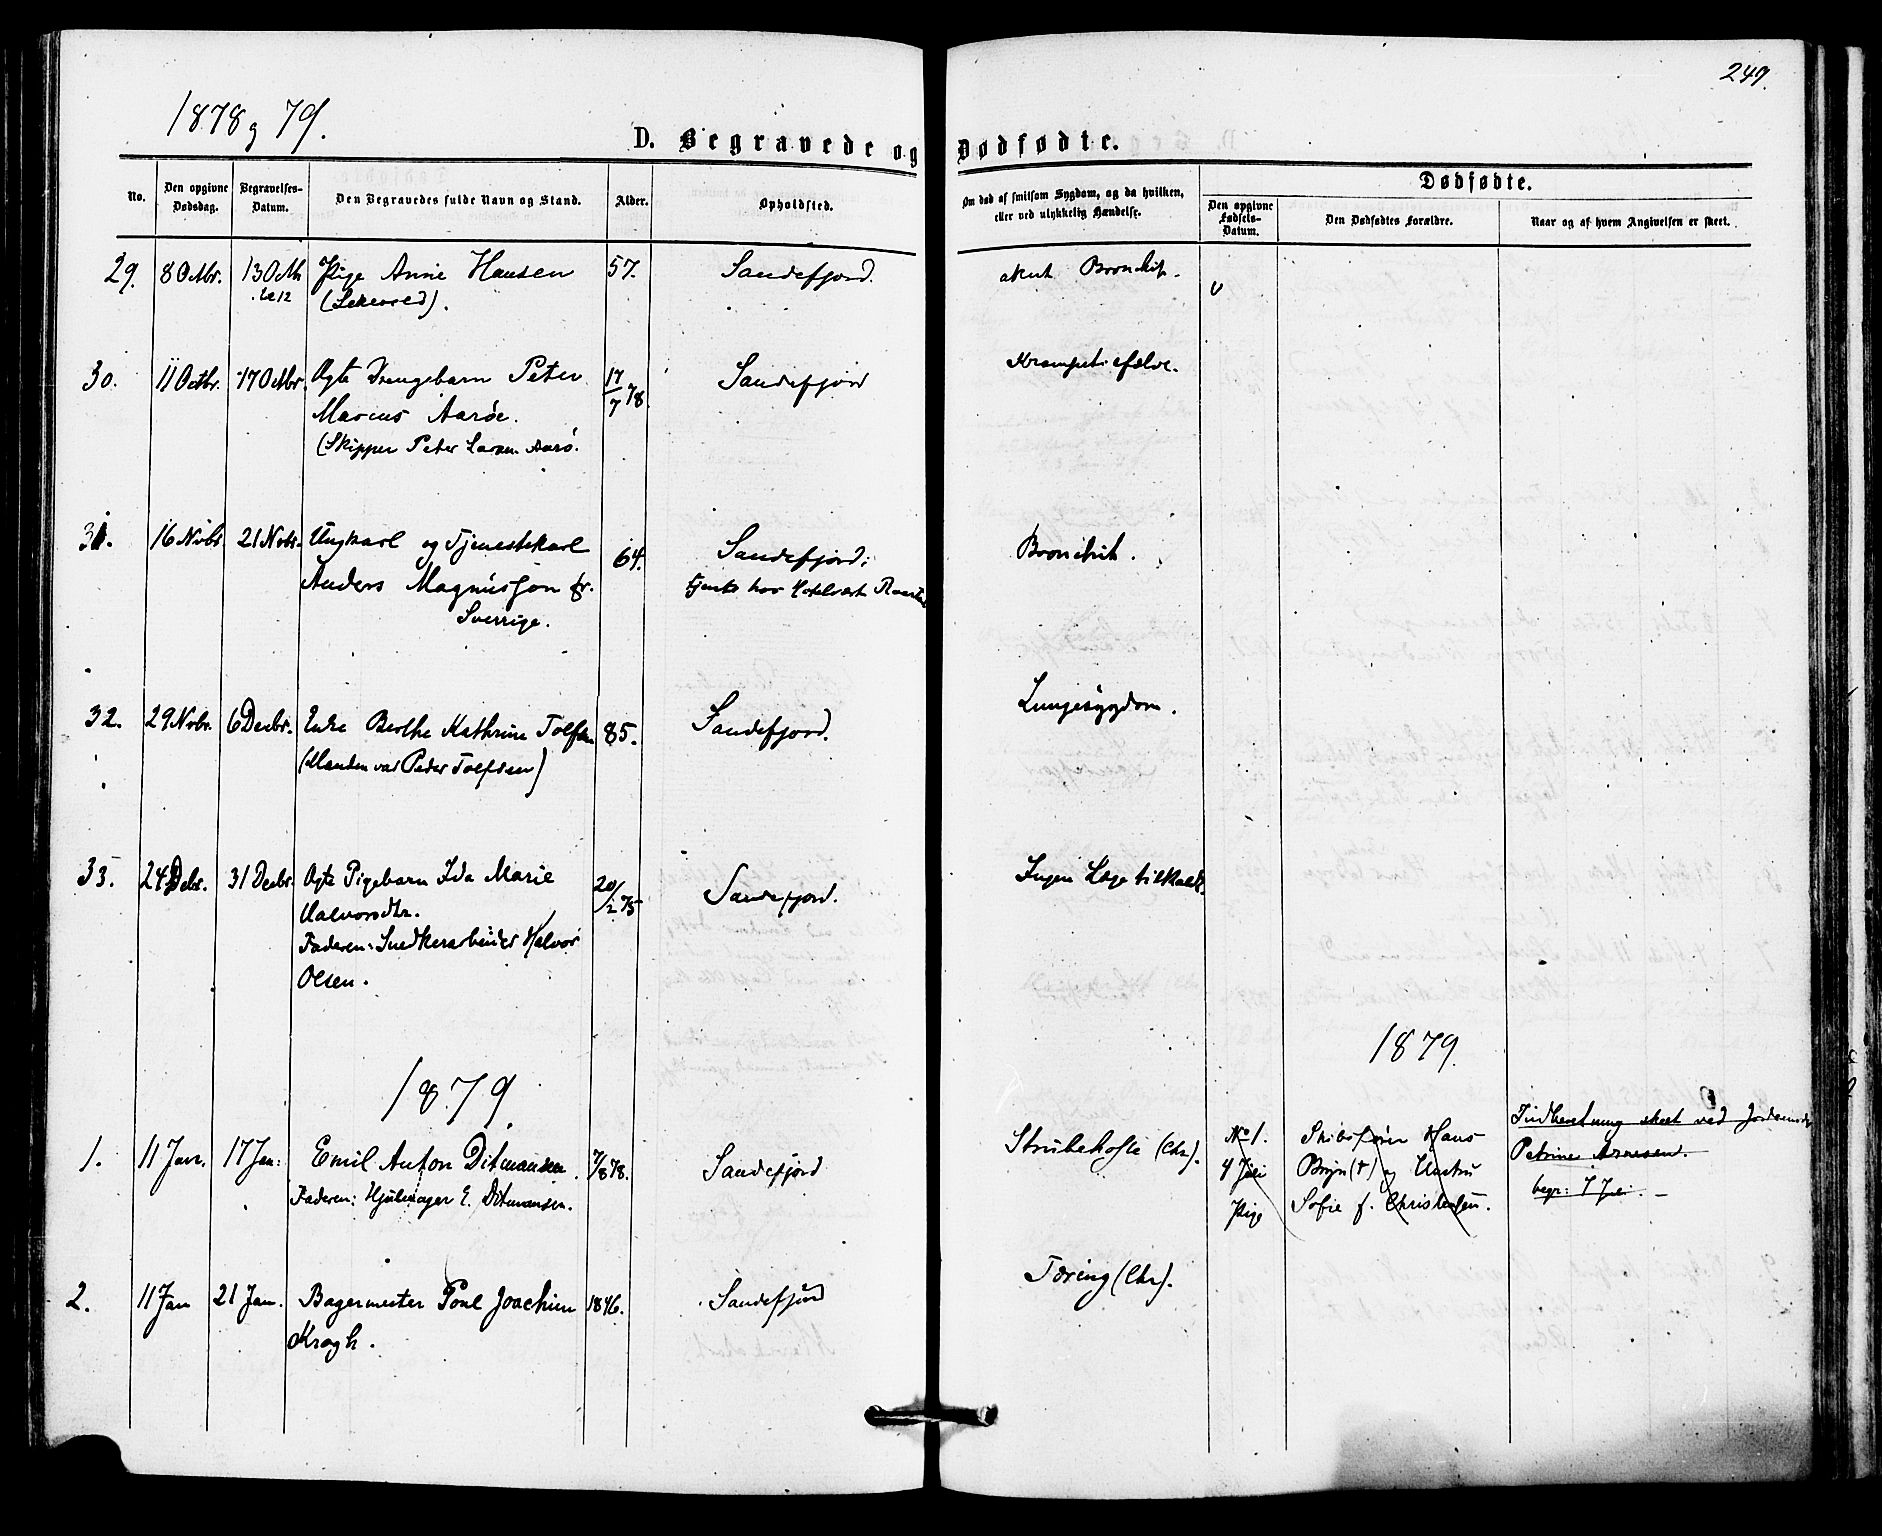 249.
1878 g 79.
D. Begravede og Dødfødte.
No.
Den opgivne Dødsdag.
Begravelses-Datum.
Den Begravedes fulde Navn og Stand.
Alder.
Opholdsted.
Om død af smitsom Sygdom, og da hvilken, eller ved ulykkelig Hændelse.
Dødfødte.
Den opgivne Fødsels-Datum.
Den Dødfødtes Forældre.
Naar og af hvem Angivelsen er skeet.
29. 8 Octbr. 13 Octb Pige Anne Hansen 57. Sandefjord. akut Bronchit.
30. 11 Octbr. 17 Octbr. Ægte Drengebarn Peter 17/7 78. Sandefjord Krampetilfælde.
Marius Aarøe.
(Skipper Peter Laren. Aarø.
31. 16 Novbr. 21 Novbr. Ungkarl og Tjenestekarl 64. Sandefjord; Bronchit.
Anders Magnusson fr. tjente hos Hotelvært
Sverrige.
32. 29 Novbr. 6 Decbr. Enke Berthe Kathrine Tolfsen 85. Sandefjord. Lungesygdom.
(Manden var Peder Tolfsen)
33. 24 Debr. 31 Decbr. Ægte Pigebarn Ida Marie 20/2 75 Sandefjord. Ingen Læge tilkaldt.
Halvorsdtr.
Faderen: Snedkerarbeider Halvor
Olsen.
1879.
1879.
1. 11 Jan. 17 Jan: Emil Anton Ditmansen. 7/8 78. Sandefjord Strubehoste (Chr).
Faderen: Hjulmager E. Ditmansen.
No 1. Skibsfører Hans Indberetning skeet ved Jordemoder
4 Juli Bryn (?) og Hustru Petrine Arnesen.
Pige Sofie f. Christensen. begr: 7 Juli. —
2. 11 Jan 21 Jan. Bagermester Poul Joachim 1846. Sandefjord Tæring (Chr).
Kragh.